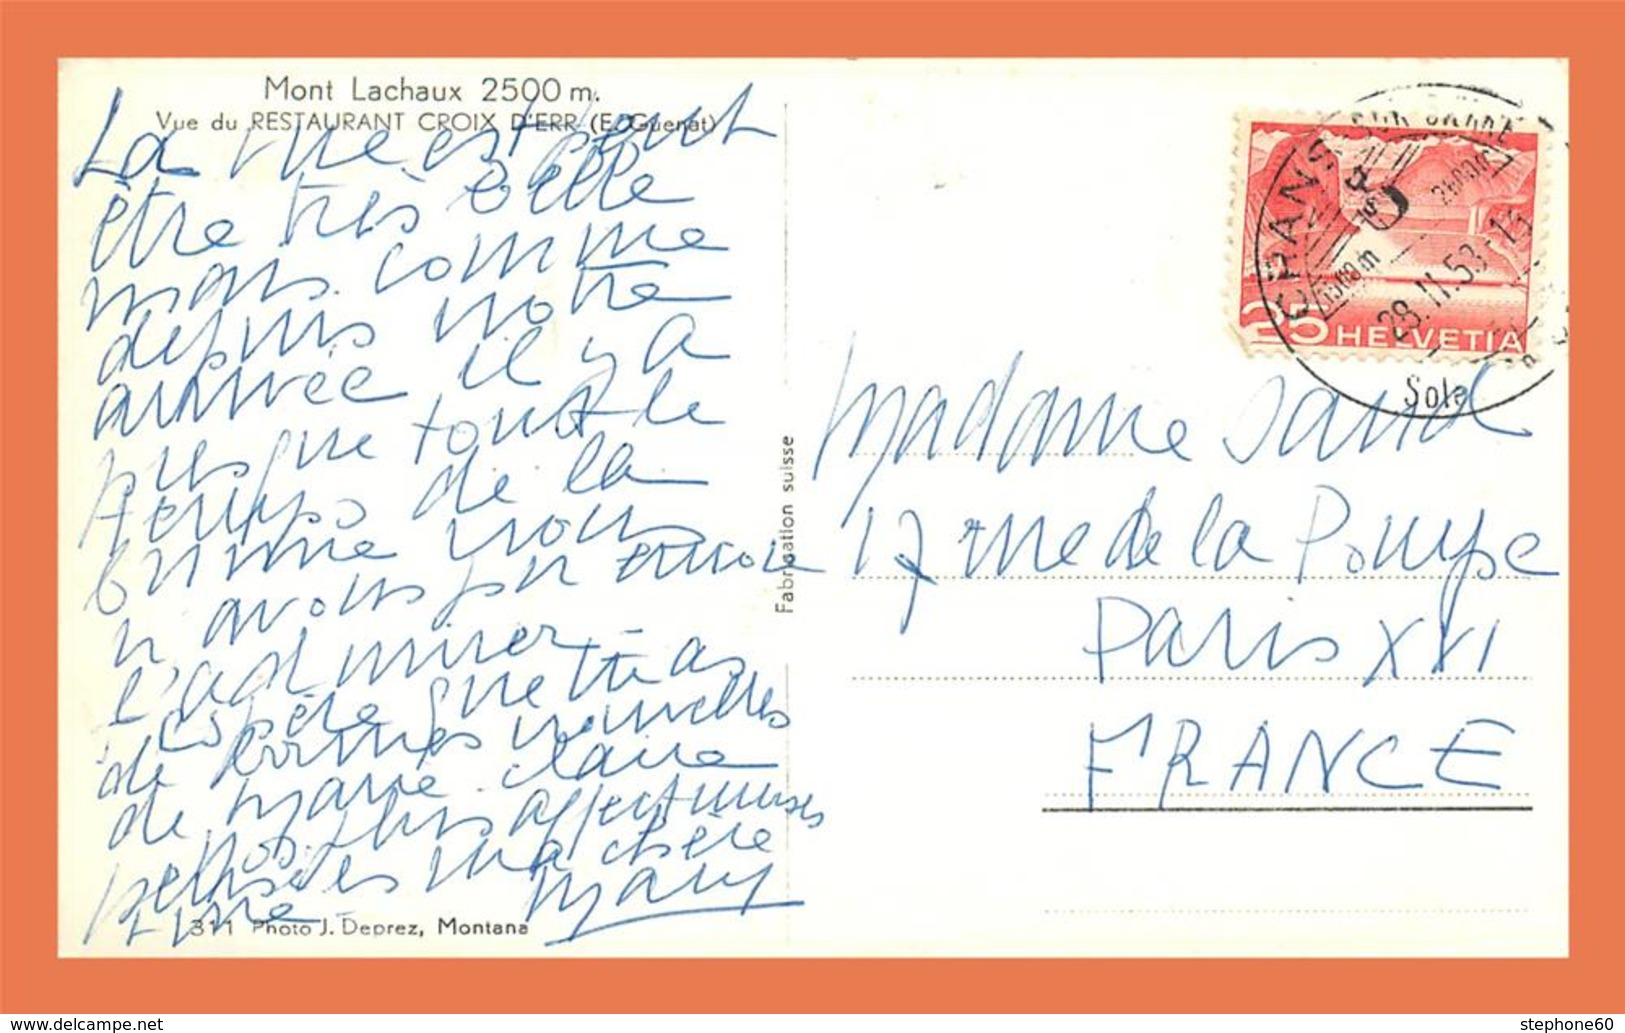 Mont Lachaux 2500 m.
Vue du RESTAURANT CROIX D'ERR (E. Guenat)
La vue est peut
être très belle
mais comme
depuis notre
arrivée il y a
presque tout le
temps de la
brume nous
n'avons pu encore
l'admirer
espère que tu as
de bonnes nouvelles
de Marie Claire
nos plus affectueuses
pensées ma chère
Line
Mary
311 Photo J. Deprez, Montana
Fabrication suisse
CRANS SUR SIERRE
1500 m
28.11.53-14
Sole
25 HELVETIA
Madame Sand
17 rue de la Pompe
Paris XVI
FRANCE
delcampe.net
stephone60